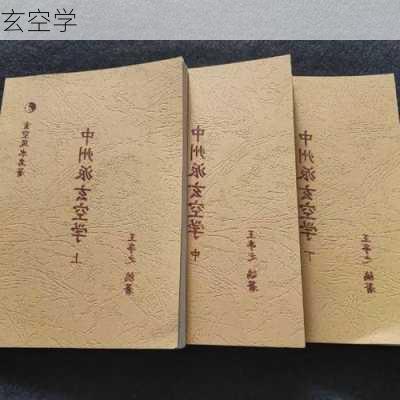 玄空学
玄空风水
中州派玄空学 上
王亭之 编著
中州派玄空学 中
王亭之 编著
中州派玄空学 下
王亭之 编著